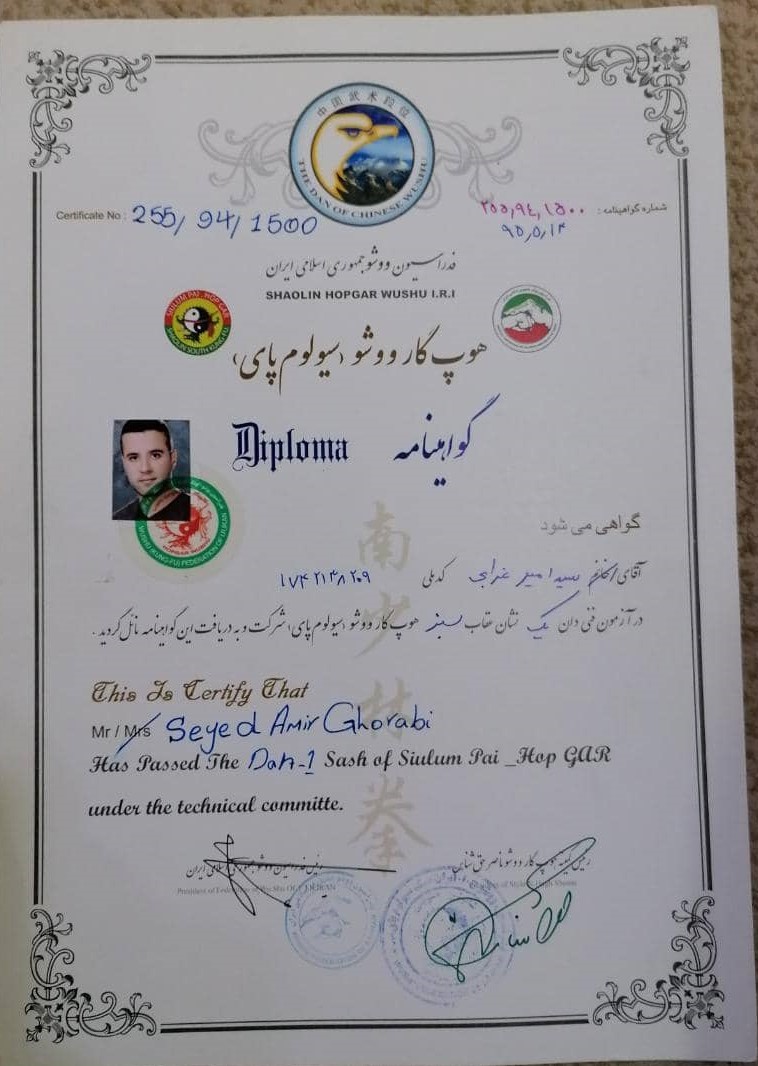 中国武术段位
THE DAN OF CHINESE WUSHU
Certificate No : 255/94/1500
شماره گواهینامه : ۲۵۵,۹۴,۱۵۰۰
۹۵,۵,۱۴
فدراسیون ووشو جمهوری اسلامی ایران
SHAOLIN HOPGAR WUSHU I.R.I
SIULUM PAI . HOP GAR
SHAOLIN SOUTH KUNG FU
هوپ گار ووشو (سیولوم پای)
Diploma گواهینامه
WUSHU KUNG-FU FEDERATION OF I.R.IRAN
南少林拳
گواهی می شود
آقای/خانم سید امیر غرابی کدملی
در آزمون فنی دان یک نشان عقاب سبز هوپ گار ووشو (سیولوم پای) شرکت و به دریافت این گواهینامه نائل گردید .
This Is Certify That
Mr / Mrs Seyed Amir Ghorabi
Has Passed The Dan-1 Sash of Siulum Pai _Hop GAR
under the technical committe.
رئیس فدراسیون ووشو جمهوری اسلامی ایران
President of Federation of Wu Shu OF I.R.IRAN
رئیس کمیته هوپ گار ووشو ناصر حق شناس